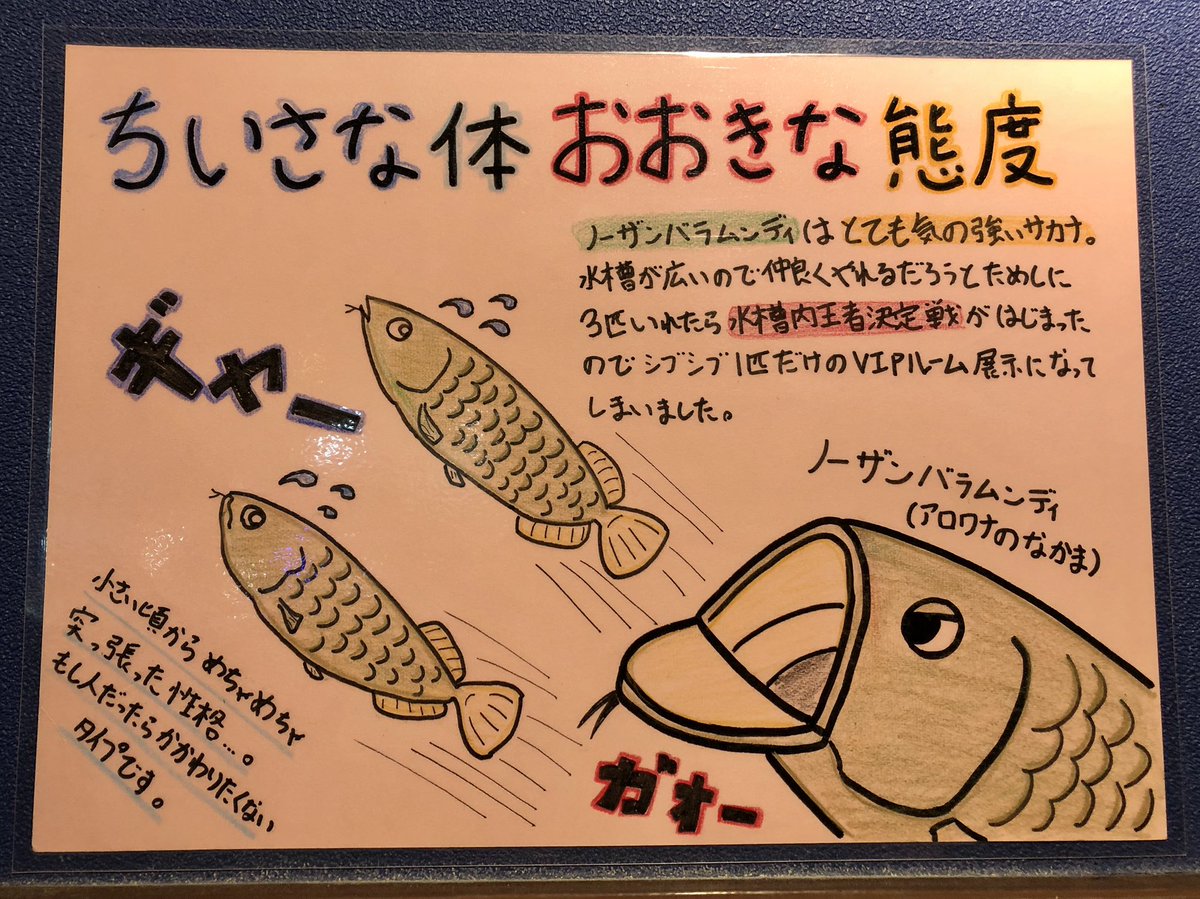 ちいさな体 おおきな態度
ノーザンバラムンディはとても気の強いサカナ。
水槽が広いので仲良くやれるだろうとためしに
3匹いれたら水槽内王者決定戦がはじまった
のでシブシブ1匹だけのVIPルーム展示になって
しまいました。
ギャー
ノーザンバラムンディ
(アロワナのなかま)
小さい頃からめちゃめちゃ
突っ張った性格…。
もし人だったらかかわりたくない
タイプです。
ガオー